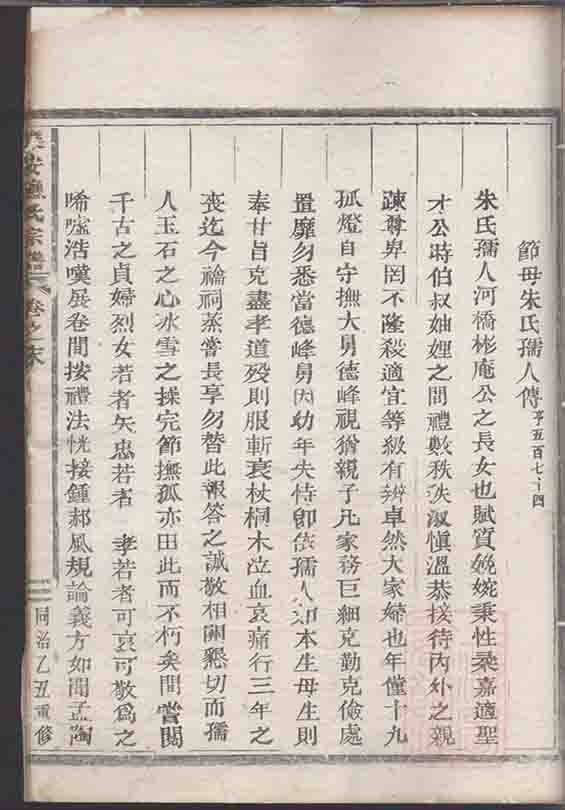 節母朱氏孺人傳 亨五百七十四
朱氏孺人河橋彬庵公之長女也賦質婉婉秉性柔嘉適聖
才公時伯叔妯娌之間禮數秩秩淑慎溫恭接待內外之親
疎尊卑罔不隆殺適宜等級有辨卓然大家婦也年僅十九
孤燈自守撫大舅德峰視猶親子凡家務巨細克勤克儉處
置靡勿悉當德峰舅因幼年失恃卽依孺人如本生母生則
奉甘旨克盡孝道歿則服斬衰杖桐木泣血哀痛行三年之
喪迄今禴祠蒸嘗長享勿替此報答之誠敬相關懇切而孺
人玉石之心冰雪之操完節撫孤亦由此而不朽矣間嘗閱
千古之貞婦烈女若者矢忠若者 孝若者可哀可敬爲之
唏噓浩嘆展卷間按禮法恍接鍾郝風規論義方如聞孟陶
安 氏宗譜
卷之末
同治乙丑重修